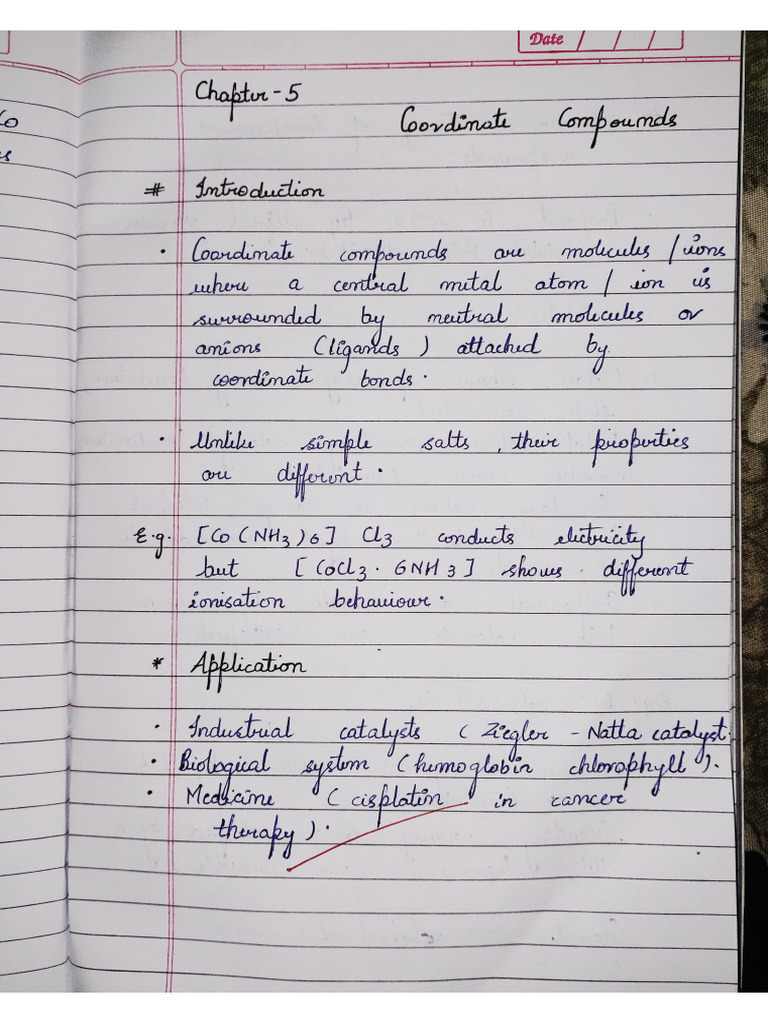 Date / / /
Chapter-5
Coordinate Compounds
# Introduction
• Coordinate compounds are molecules / ions
where a central metal atom / ion is
surrounded by neutral molecules or
anions (ligands) attached by
coordinate bonds.
• Unlike simple salts, their properties
are different.
E.g. [Co(NH3)6] Cl3 conducts electricity
but [CoCl3 · 6NH3] shows different
ionisation behaviour.
* Application
• Industrial catalysts (Ziegler - Natta catalyst.
• Biological system (hemoglobin chlorophyll).
• Medicine (cisplatin in cancer
therapy).